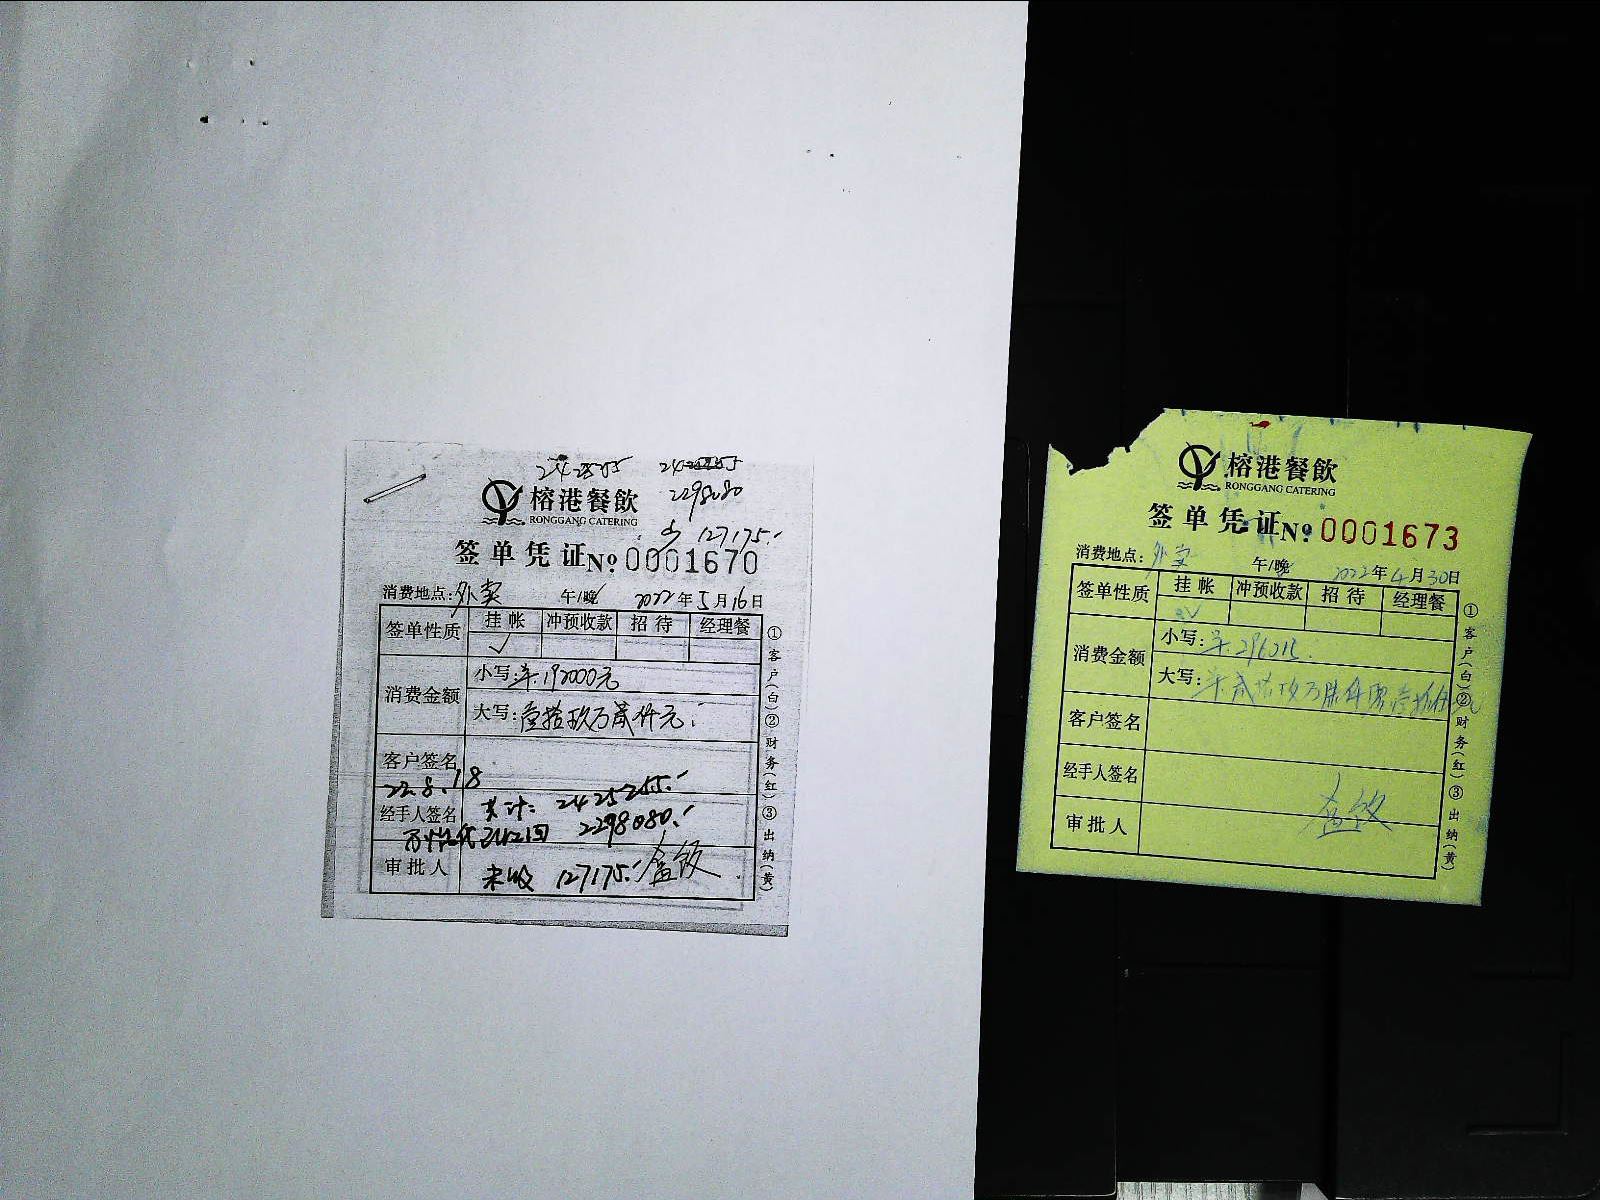 2425255 2425255
2298080
榕港餐飲
RONGGANG CATERING
少 127175.-
签单凭证 № 0001670
消费地点: 外卖 午/晚 2022年5月16日
签单性质 挂帐 冲预收款 招待 经理餐
✓
消费金额 小写: 192000元
大写: 壹拾玖万贰仟元
客户签名
22.8.18
经手人签名 共计: 2425255.-
2298080.-
审批人 未收 127175.- 盒饭
①客户(白)②财务(红)③出纳(黄)
榕港餐飲
RONGGANG CATERING
签单凭证 № 0001673
消费地点: 外卖 午/晚 2022年4月30日
签单性质 挂帐 冲预收款 招待 经理餐
✓
消费金额 小写:
大写: 贰拾玖万
客户签名
经手人签名
审批人 盒饭
①客户(白)②财务(红)③出纳(黄)